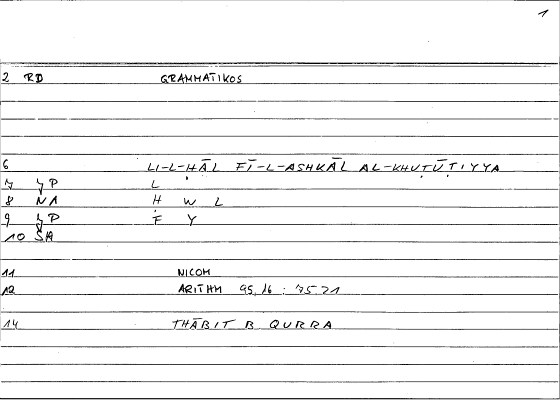 1
2 RD GRAMMATIKOS
6 LI-L-ḤĀL FĪ-L-ASHKĀL AL-KHUṬŪṬIYYA
7 ȷP L
8 NA Ḥ W L
9 ȷP F Y
10 ŠA
11 NICOM
12 ARITHM 95,16 : 75.21
14 THĀBIT B QURRA